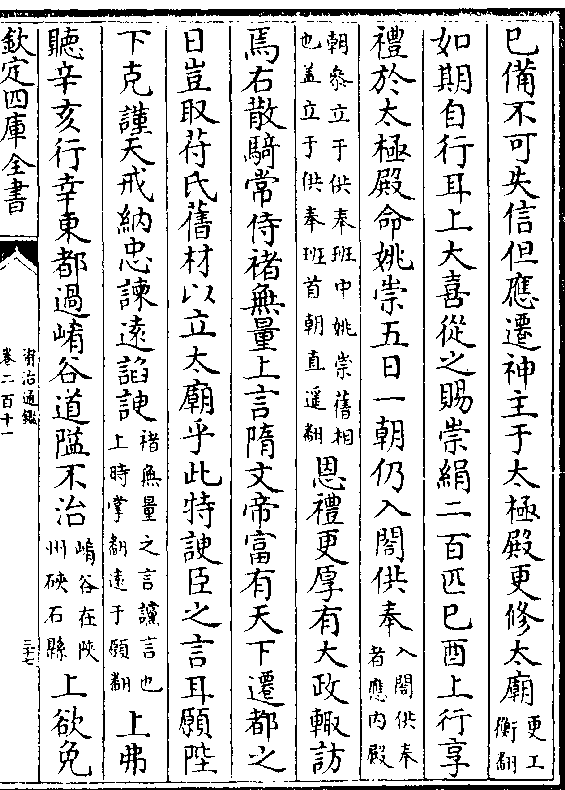 已備不可失信但應遷神主于太極殿更修太廟更工衡翻
如期自行耳上大喜從之賜崇絹二百匹己酉上行享
禮於太極殿命姚崇五日一朝仍入閤供奉入閤供奉者應内殿
朝參立于供奉班中姚崇舊相也盖立于供奉班首朝直遥翻恩禮更厚有大政輙訪
焉右散騎常侍褚無量上言隋文帝富有天下遷都之
日豈取苻氏舊材以立太廟乎此特諛臣之言耳願陛
下克謹天戒納忠諫遠諂諛褚無量之言讜言也上時掌翻遠于願翻上弗
聽辛亥行幸東都過崤谷道隘不治崤谷在陜州硤石縣上欲免
欽定四庫全書
資治通鑑
卷二百十一
三十七